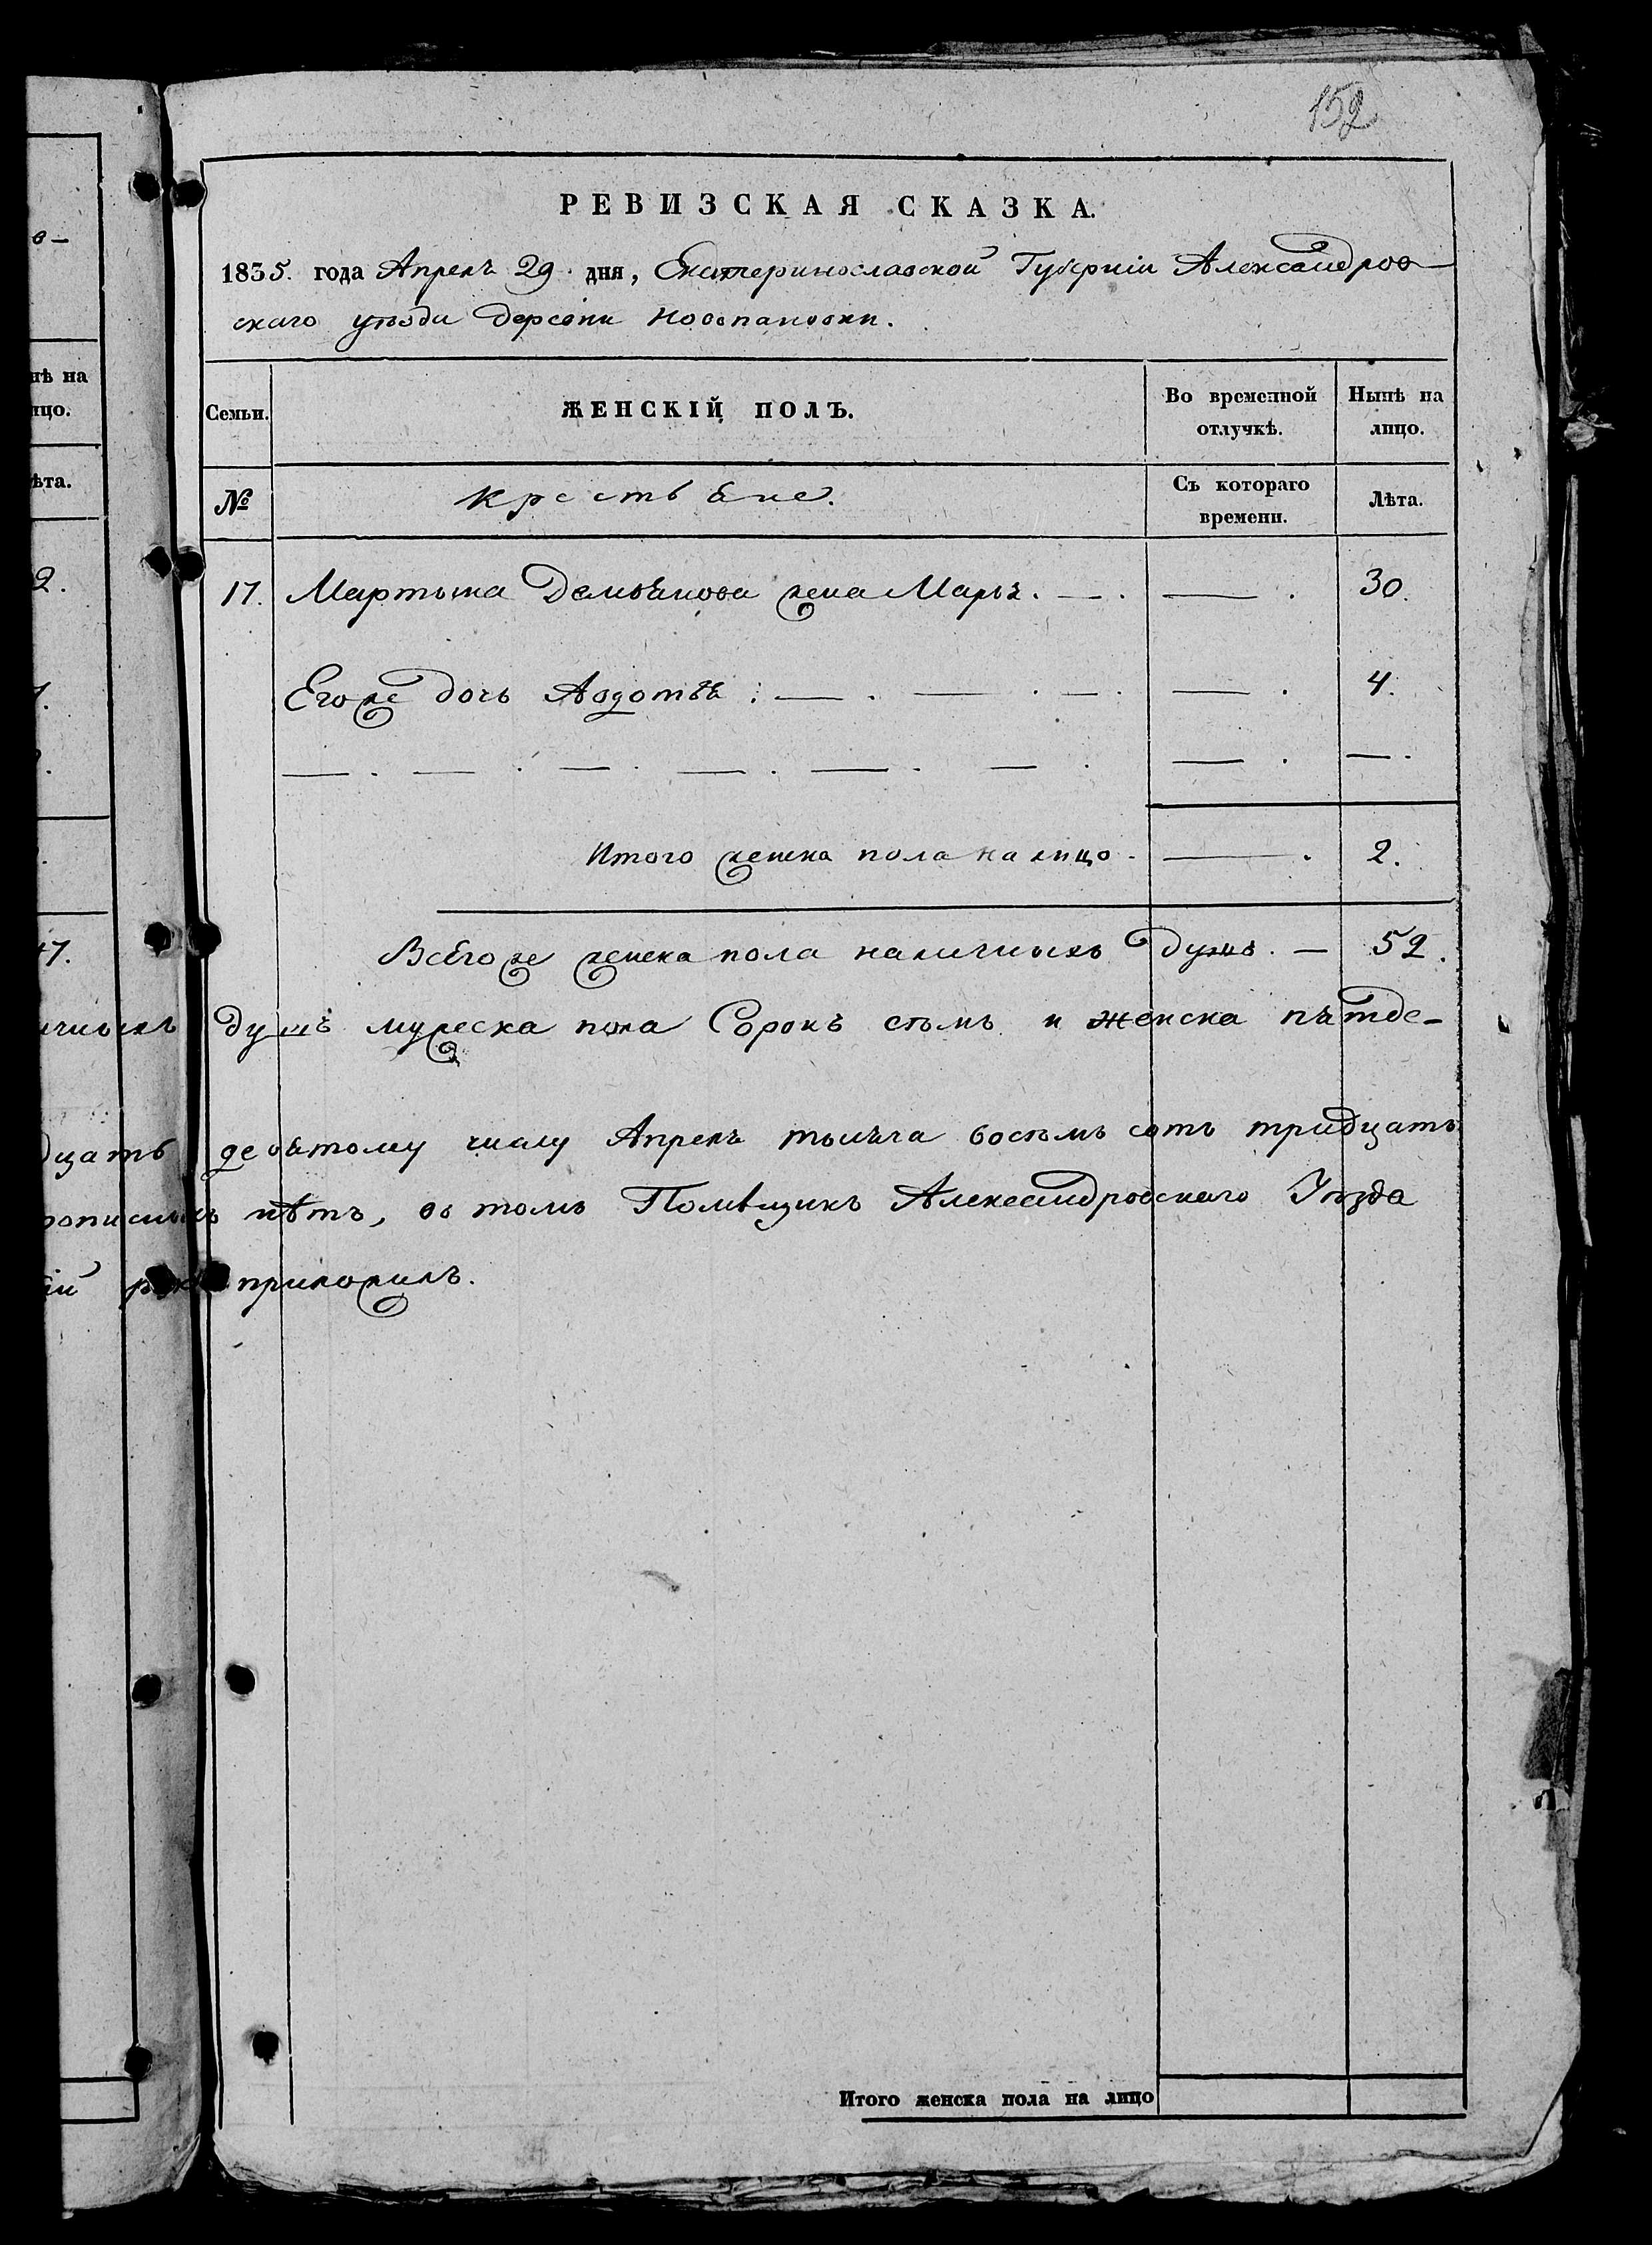 152
РЕВИЗСКАЯ СКАЗКА.
1835. года Апрелѣ 29. дня, Екатеринославской Губерніи Александров-
скаго уѣзда деревни Новопановки.
Семьи.
ЖЕНСКІЙ ПОЛЪ.
Во временной отлучкѣ.
Нынѣ на лицо.
№
крестьяне.
Съ котораго времени.
Лѣта.
17. Мартына Демьянова жена Марья. — . — . 30.
Его же дочь Авдотья : — . — . — . — . 4.
— . — . — . — . — . — . — . — .
Итого женска пола на лицо - — . 2.
Всего же женска пола наличныхъ душъ. — 52.
душъ мужеска пола Сорокъ семь и женска пятде-
девятому числу Апрелѣ тысяча восемь сотъ тридцать
нѣтъ, въ томъ Помѣщикъ Александровскаго Уѣзда
приложилъ.
Итого женска пола на лицо
нѣ на
ицо.
ѣта.
2.
47.